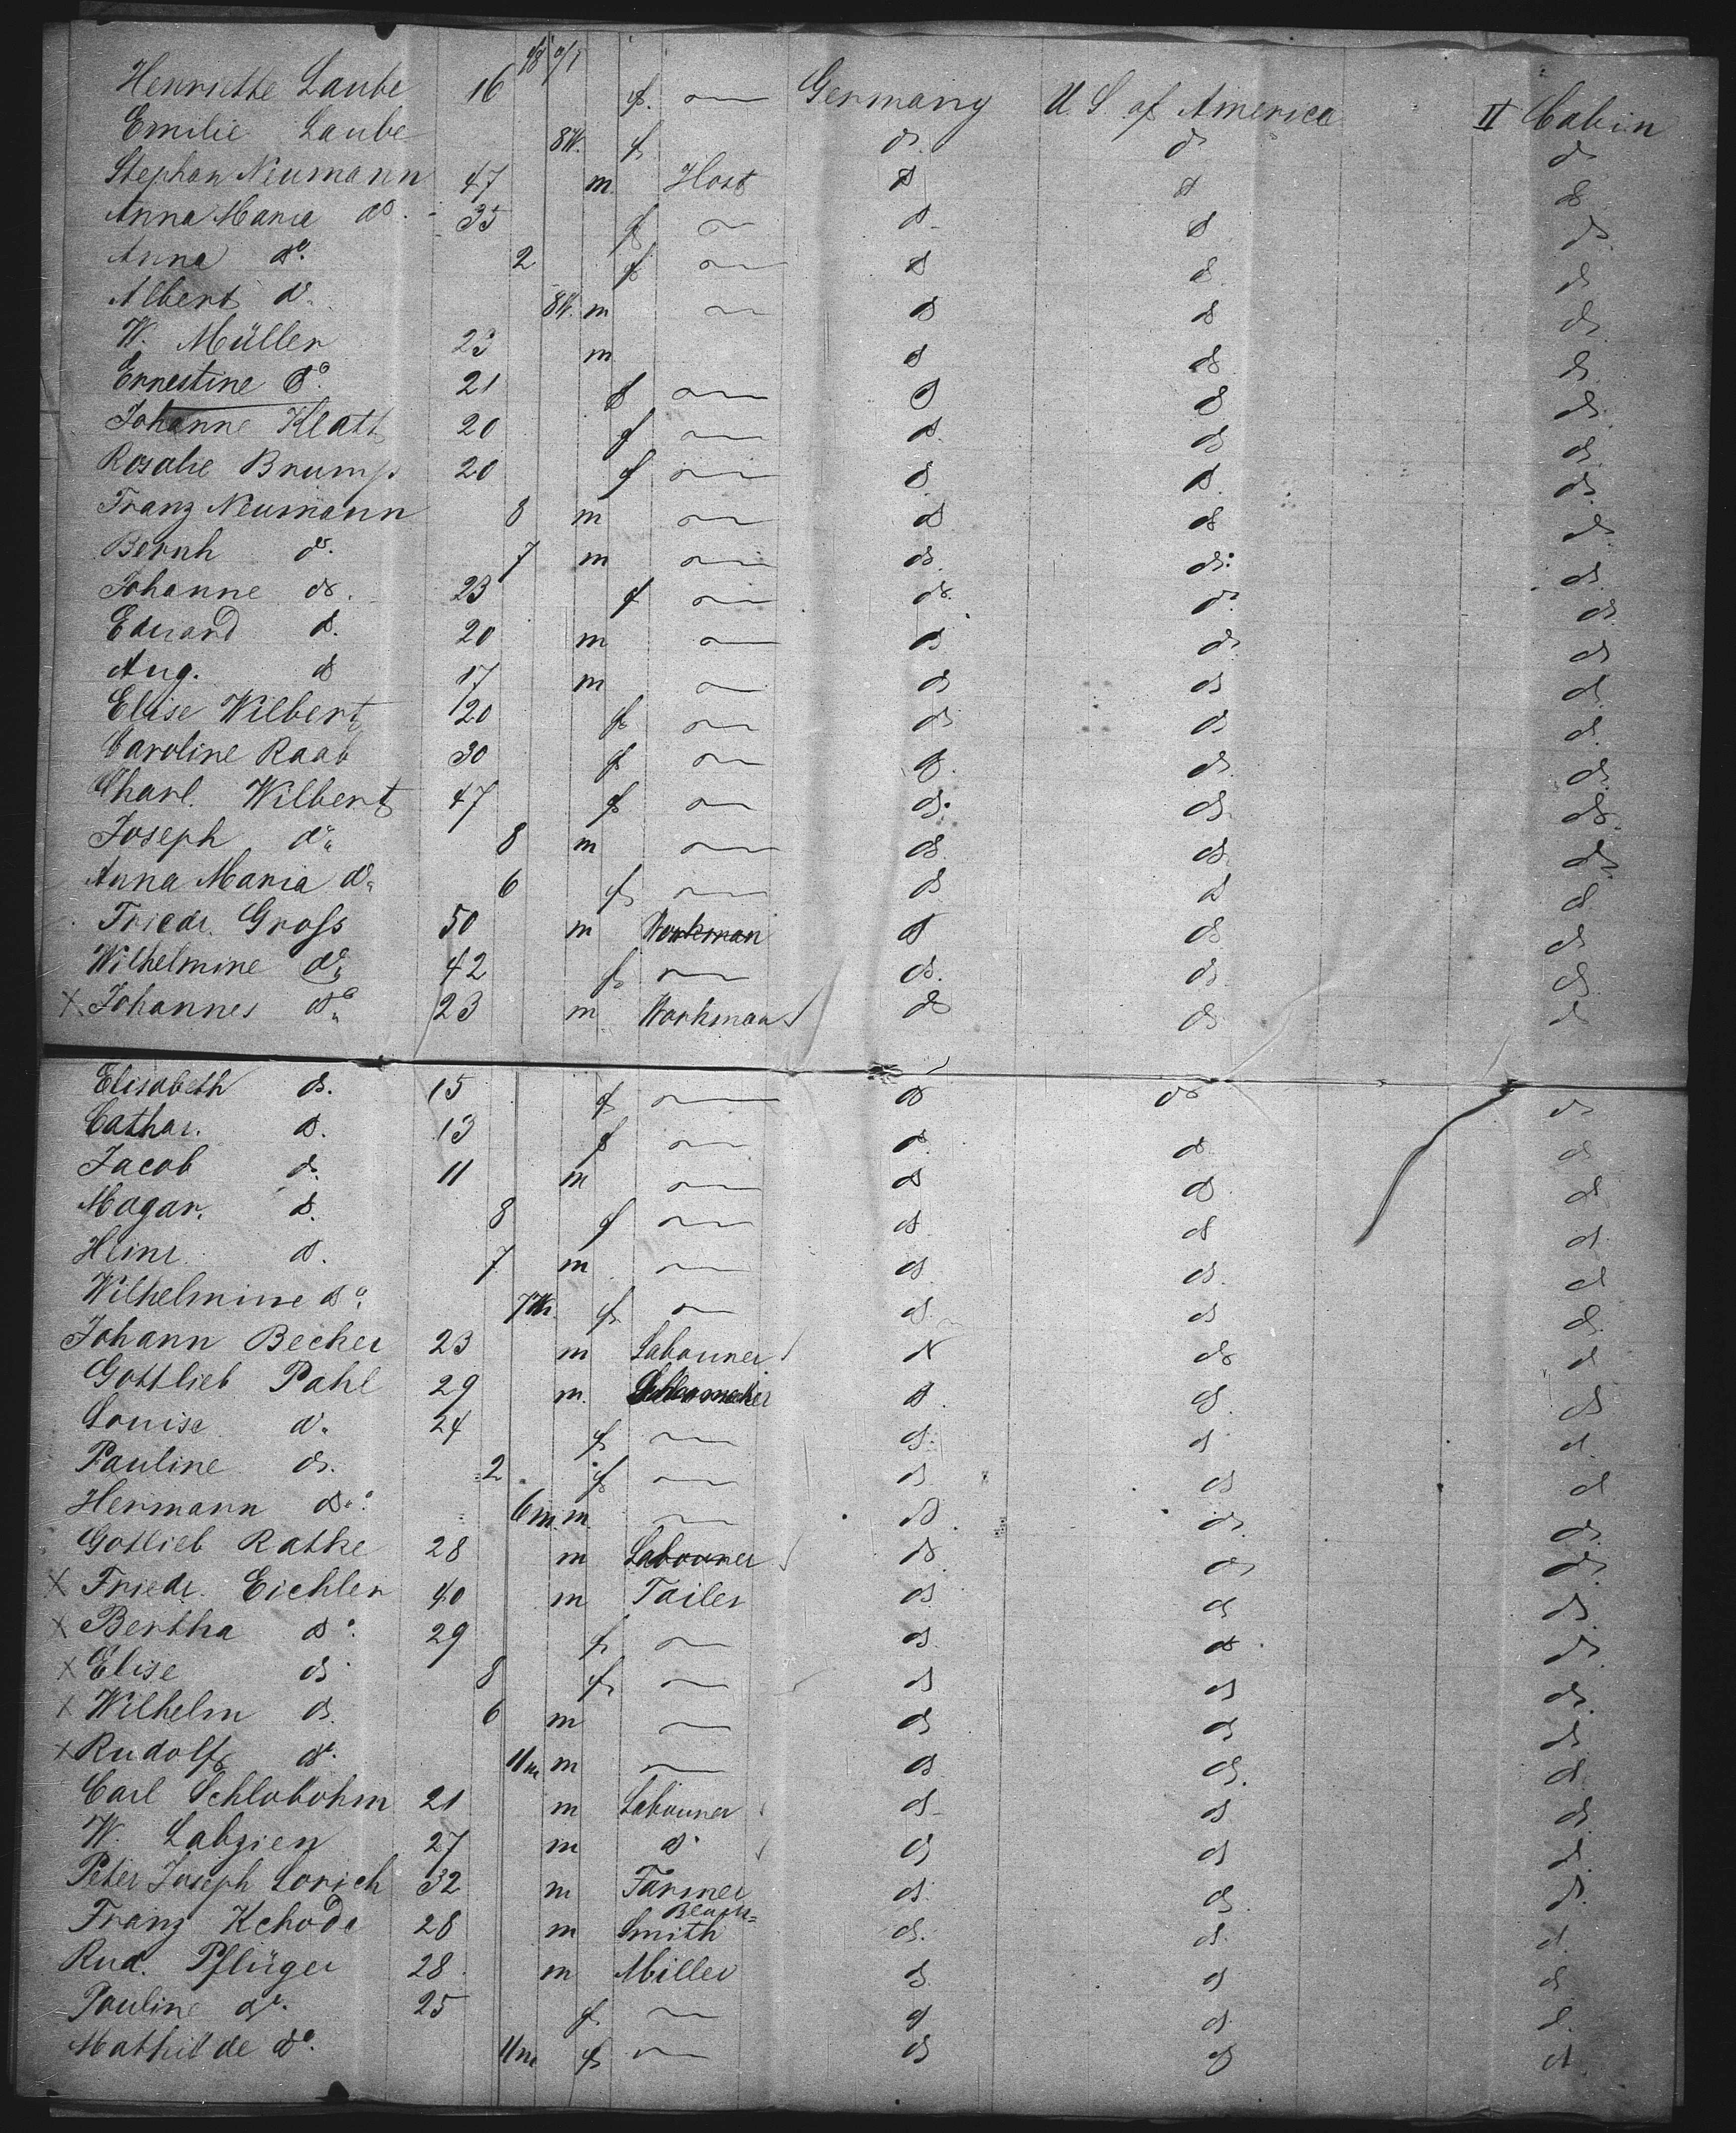 Henriette Laube 16 f. — Germany U. S. of America II Cabin
Emilie Laube 8W. f do do do
Stephan Neumann 47 m Host do do do
Anna Maria do. 35 f — do do do
Anna do. 2 f — do do do
Albert do. 8W. m — do do do
W. Müller 23 m do do do
Ernestine do. 21 f — do do do
Johanne Klatt 20 f — do do do
Rosalie Brump 20 f — do do do
Franz Neumann 8 m — do do do
Bernh do. 7 m — do do do
Johanne do. 23 f — do do do
Eduard do. 20 m — do do do
Aug. do 17 m — do do do
Elise Wilbert 20 f — do do do
Caroline Raab 30 f — do do do
Charl. Wilbert 47 f — do do do
Joseph do 8 m — do do do
Anna Maria do 6 f — do do do
Friedr. Gross 50 m Workman do do do
Wilhelmine do 42 f — do do do
X Johannes do 23 m Workman do do do
Elisabeth do. 15 f — do do do
Cathar. do. 13 f — do do do
Jacob do. 11 m — do do do
Magar. do. 8 f — do do do
Heinr. do. 7 m — do do do
Wilhelmine do 7W. f — do do do
Johann Becker 23 m Labourer do do do
Gottlieb Pahl 29 m. do do do
Louise do. 24 f — do do do
Pauline do. 2 f — do do do
Hermann do. 6m. m. — do do do
Gotlieb Rathe 28 m Labourer do do do
X Friedr. Eichler 40 m Tailer do do do
X Bertha do. 29 f — do do do
X Elise do 8 f — do do do
X Wilhelm do. 6 m — do do do
X Rudolf do. 11m m — do do do
Carl Schlobohm 21 m Labourer do do do
W. Labzien 27 m do do do do
Peter Joseph Lorich 32 m Farmer do do do
Franz Kchode 28 m Black= Smith do do do
Rud. Pflüger 28 m Miller do do do
Pauline do. 25 f — do do do
Mathilde do. 11m f — do do do